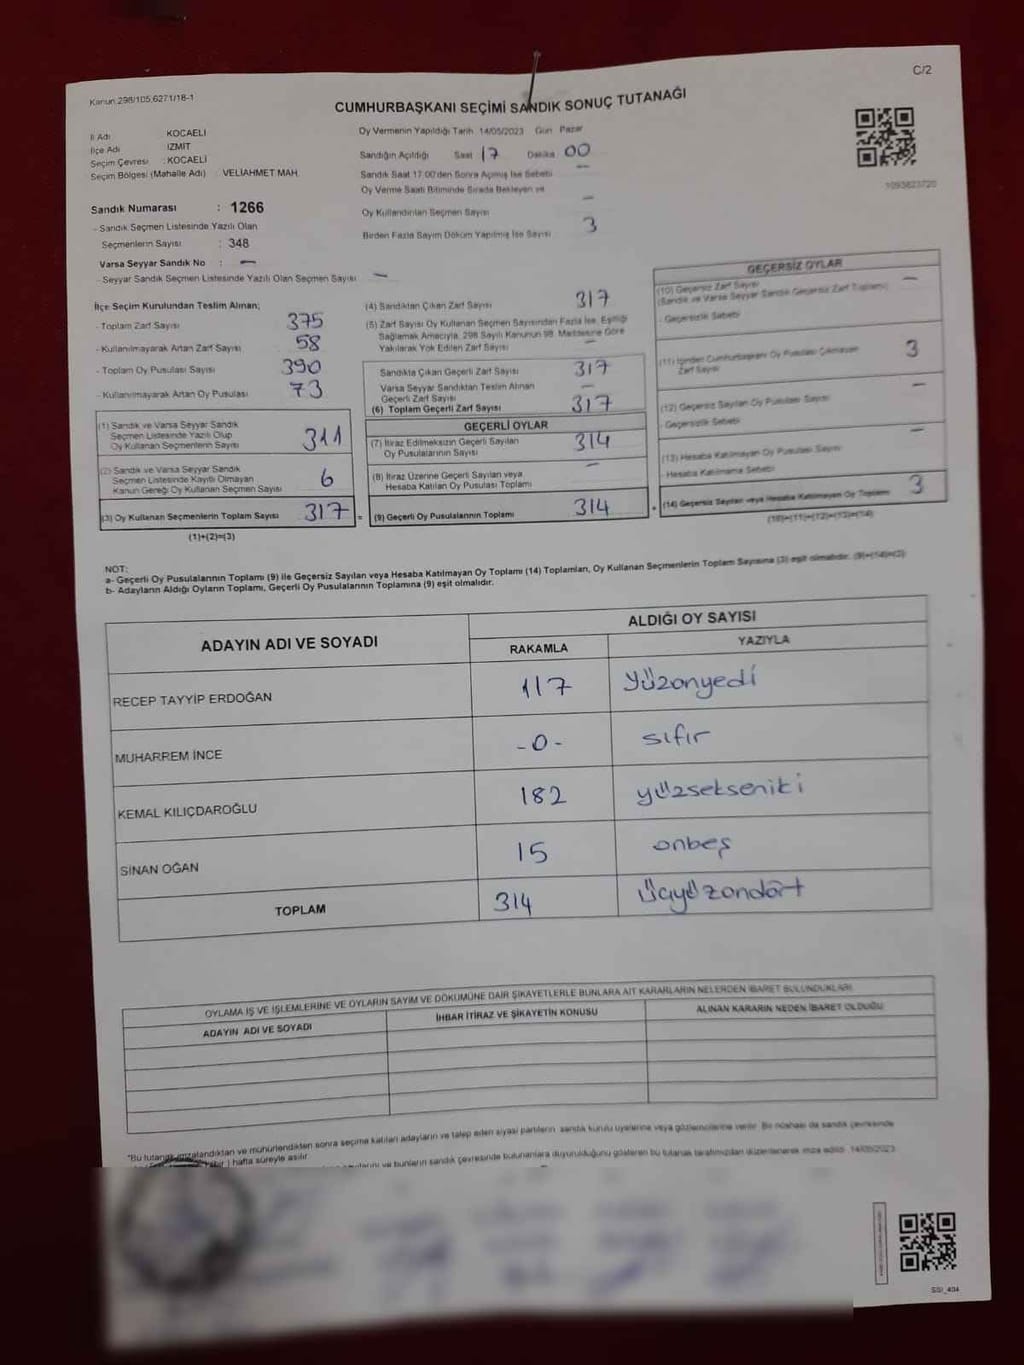 C/2
Kanun.298/105,6271/18-1
CUMHURBAŞKANI SEÇİMİ SANDIK SONUÇ TUTANAĞI
İl Adı KOCAELİ
İlçe Adı İZMİT
Seçim Çevresi : KOCAELİ
Seçim Bölgesi (Mahalle Adı) : VELİAHMET MAH.
Sandık Numarası : 1266
- Sandık Seçmen Listesinde Yazılı Olan
Seçmenlerin Sayısı : 348
Varsa Seyyar Sandık No : —
- Seyyar Sandık Seçmen Listesinde Yazılı Olan Seçmen Sayısı —
Oy Vermenin Yapıldığı Tarih 14/05/2023 Gün Pazar
Sandığın Açıldığı Saat 17 Dakika 00
Sandık Saat 17:00'den Sonra Açılmış İse Sebebi —
Oy Verme Saati Bitiminde Sırada Bekleyen ve
Oy Kullandırılan Seçmen Sayısı —
Birden Fazla Sayım Döküm Yapılmış İse Sayısı 3
1093823720
İlçe Seçim Kurulundan Teslim Alınan;
- Toplam Zarf Sayısı 375
- Kullanılmayarak Artan Zarf Sayısı 58
- Toplam Oy Pusulası Sayısı 390
- Kullanılmayarak Artan Oy Pusulası 73
(1) Sandık ve Varsa Seyyar Sandık
Seçmen Listesinde Yazılı Olup
Oy Kullanan Seçmenlerin Sayısı 311
(2) Sandık ve Varsa Seyyar Sandık
Seçmen Listesinde Kayıtlı Olmayan
Kanun Gereği Oy Kullanan Seçmen Sayısı 6
(3) Oy Kullanan Seçmenlerin Toplam Sayısı 317 =
(1)+(2)=(3)
(4) Sandıktan Çıkan Zarf Sayısı 317
(5) Zarf Sayısı Oy Kullanan Seçmen Sayısından Fazla İse, Eşitliği
Sağlamak Amacıyla, 298 Sayılı Kanunun 98. Maddesine Göre
Yakılarak Yok Edilen Zarf Sayısı —
Sandıkta Çıkan Geçerli Zarf Sayısı 317
Varsa Seyyar Sandıktan Teslim Alınan
Geçerli Zarf Sayısı —
(6) Toplam Geçerli Zarf Sayısı 317
GEÇERLİ OYLAR
(7) İtiraz Edilmeksizin Geçerli Sayılan
Oy Pusulalarının Sayısı 314
(8) İtiraz Üzerine Geçerli Sayılan veya
Hesaba Katılan Oy Pusulası Toplamı —
(9) Geçerli Oy Pusulalarının Toplamı 314 +
GEÇERSİZ OYLAR
(10) Geçersiz Zarf Sayısı —
(Sandık ve Varsa Seyyar Sandık Geçersiz Zarf Toplamı)
- Geçersizlik Sebebi
(11) İçinden Cumhurbaşkanı Oy Pusulası Çıkmayan
Zarf Sayısı 3
(12) Geçersiz Sayılan Oy Pusulası Sayısı —
- Geçersizlik Sebebi
(13) Hesaba Katılmayan Oy Pusulası Sayısı —
- Hesaba Katılmama Sebebi
(14) Geçersiz Sayılan veya Hesaba Katılmayan Oy Toplamı 3
(10)+(11)+(12)+(13)=(14)
NOT:
a- Geçerli Oy Pusulalarının Toplamı (9) ile Geçersiz Sayılan veya Hesaba Katılmayan Oy Toplamı (14) Toplamları, Oy Kullanan Seçmenlerin Toplam Sayısına (3) eşit olmalıdır. (9)+(14)=(3)
b- Adayların Aldığı Oyların Toplamı, Geçerli Oy Pusulalarının Toplamına (9) eşit olmalıdır.
ADAYIN ADI VE SOYADI ALDIĞI OY SAYISI
RAKAMLA YAZIYLA
RECEP TAYYİP ERDOĞAN 117 yüzonyedi
MUHARREM İNCE -0- sıfır
KEMAL KILIÇDAROĞLU 182 yüzsekseniki
SİNAN OĞAN 15 onbeş
TOPLAM 314 üçyüzondört
OYLAMA İŞ VE İŞLEMLERİNE VE OYLARIN SAYIM VE DÖKÜMÜNE DAİR ŞİKAYETLERLE BUNLARA AİT KARARLARIN NELERDEN İBARET BULUNDUKLARI
ADAYIN ADI VE SOYADI İHBAR İTİRAZ VE ŞİKAYETİN KONUSU ALINAN KARARIN NEDEN İBARET OLDUĞU
*Bu tutanak imzalandıktan ve mühürlendikten sonra seçime katılan adayların ve talep eden siyasi partilerin sandık kurulu üyelerine veya gözlemcilerine verilir. Bir nüshası da sandık çevresinde
hafta süreyle asılır.
ve bunların sandık çevresinde bulunanlara duyurulduğunu gösteren bu tutanak tarafımızdan düzenlenerek imza edildi. 14/05/2023
SSI_404